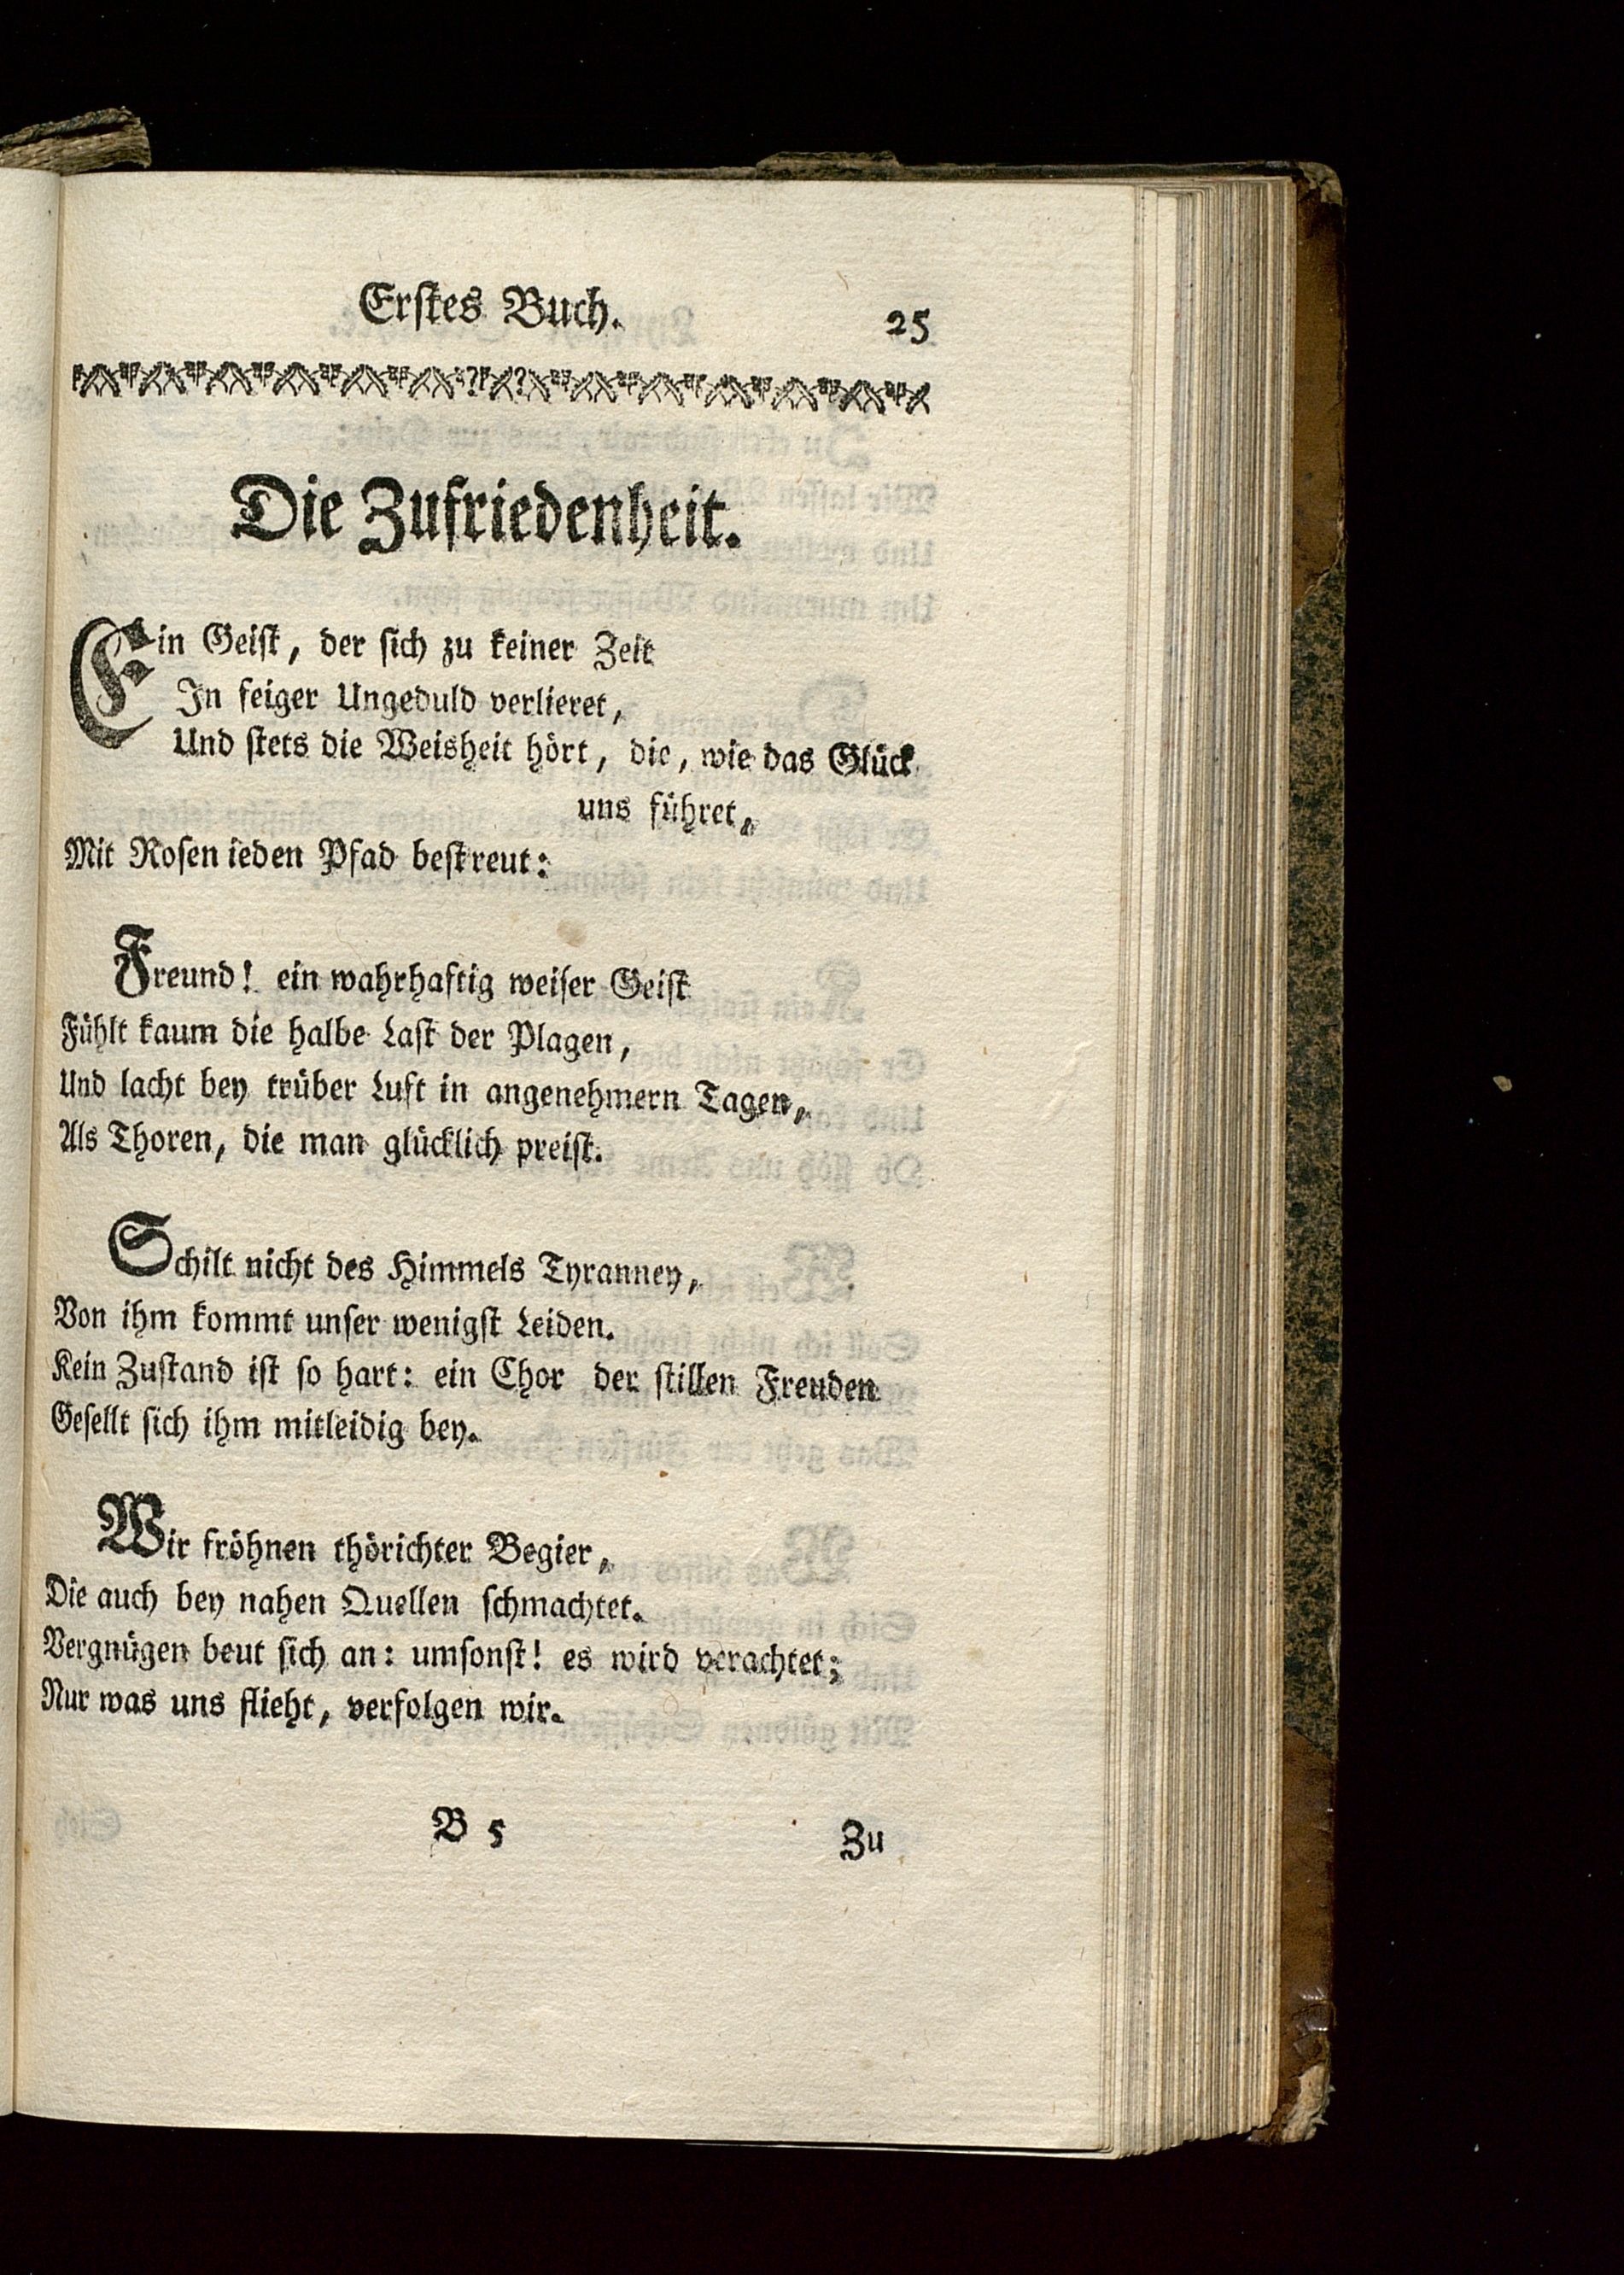 Erstes Buch. 25
Die Zufriedenheit.
Ein Geist, der sich zu keiner Zeit
In feiger Ungeduld verlieret,
Und stets die Weisheit hört, die, wie das Glück
uns führet,
Mit Rosen ieden Pfad bestreut:
Freund! ein wahrhaftig weiser Geist
Fühlt kaum die halbe Last der Plagen,
Und lacht bey trüber Luft in angenehmern Tagen,
Als Thoren, die man glücklich preist.
Schilt nicht des Himmels Tyranney,
Von ihm kommt unser wenigst Leiden.
Kein Zustand ist so hart: ein Chor der stillen Freuden
Gesellt sich ihm mitleidig bey.
Wir fröhnen thörichter Begier,
Die auch bey nahen Quellen schmachtet.
Vergnügen beut sich an: umsonst! es wird verachtet;
Nur was uns flieht, verfolgen wir.
B 5 Zu